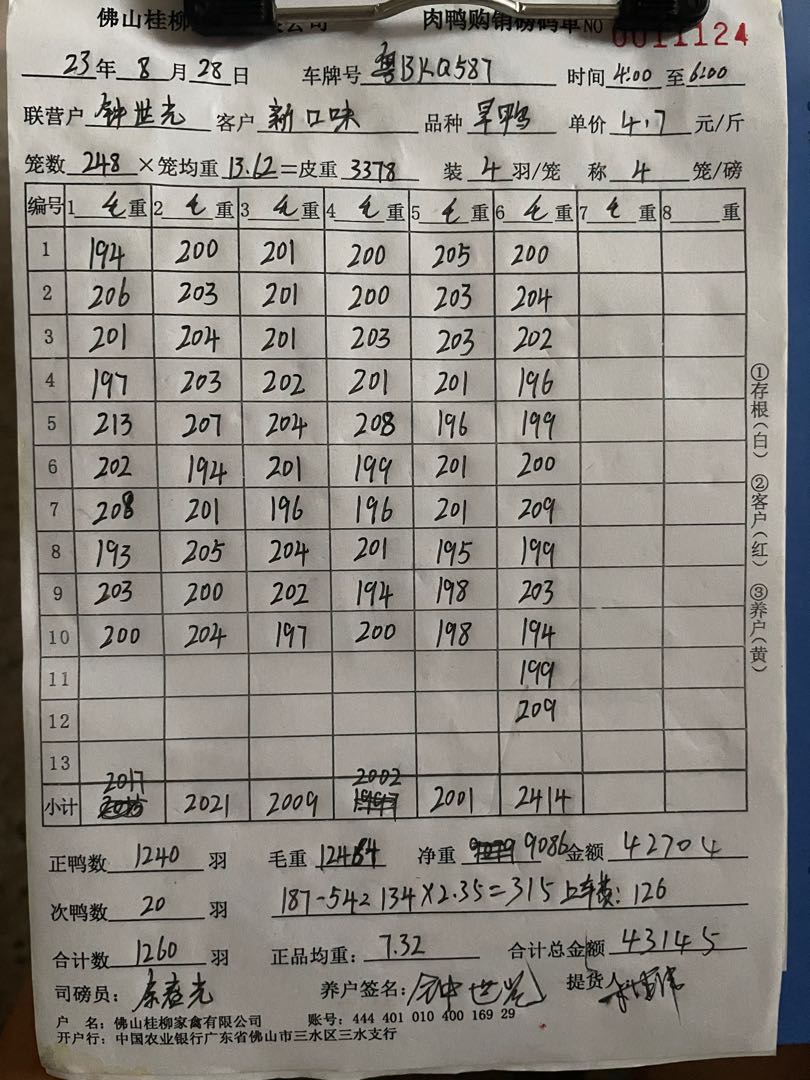 佛山桂柳 公司 肉鸭购销磅码单 NO 0011124
23年 8月28日 车牌号 粤BKQ587 时间 4:00 至 6:00
联营户 钟世光 客户 新口味 品种 旱鸭 单价 4.7 元/斤
笼数 248 ×笼均重 13.62 =皮重 3378 装 4 羽/笼 称 4 笼/磅
编号 1 毛 重 2 毛 重 3 毛 重 4 毛 重 5 毛 重 6 毛 重 7 毛 重 8 重
1 194 200 201 200 205 200
2 206 203 201 200 203 204
3 201 204 201 203 203 202
4 197 203 202 201 201 196
5 213 207 204 208 196 199
6 202 194 201 199 201 200
7 208 201 196 196 201 209
8 193 205 204 201 195 199
9 203 200 202 194 198 203
10 200 204 197 200 198 194
11 199
12 209
13
小计 2017 2021 2009 2002 2001 2414
正鸭数 1240 羽 毛重 12464 净重 9086 金额 42704
次鸭数 20 羽 187-54= 134×2.35=315 上车费: 126
合计数 1260 羽 正品均重: 7.32 合计总金额 43145
司磅员: 养户签名: 钟世光 提货人
户 名: 佛山桂柳家禽有限公司 账号: 444 401 010 400 169 29
开户行: 中国农业银行广东省佛山市三水区三水支行
①存根(白) ②客户(红) ③养户(黄)